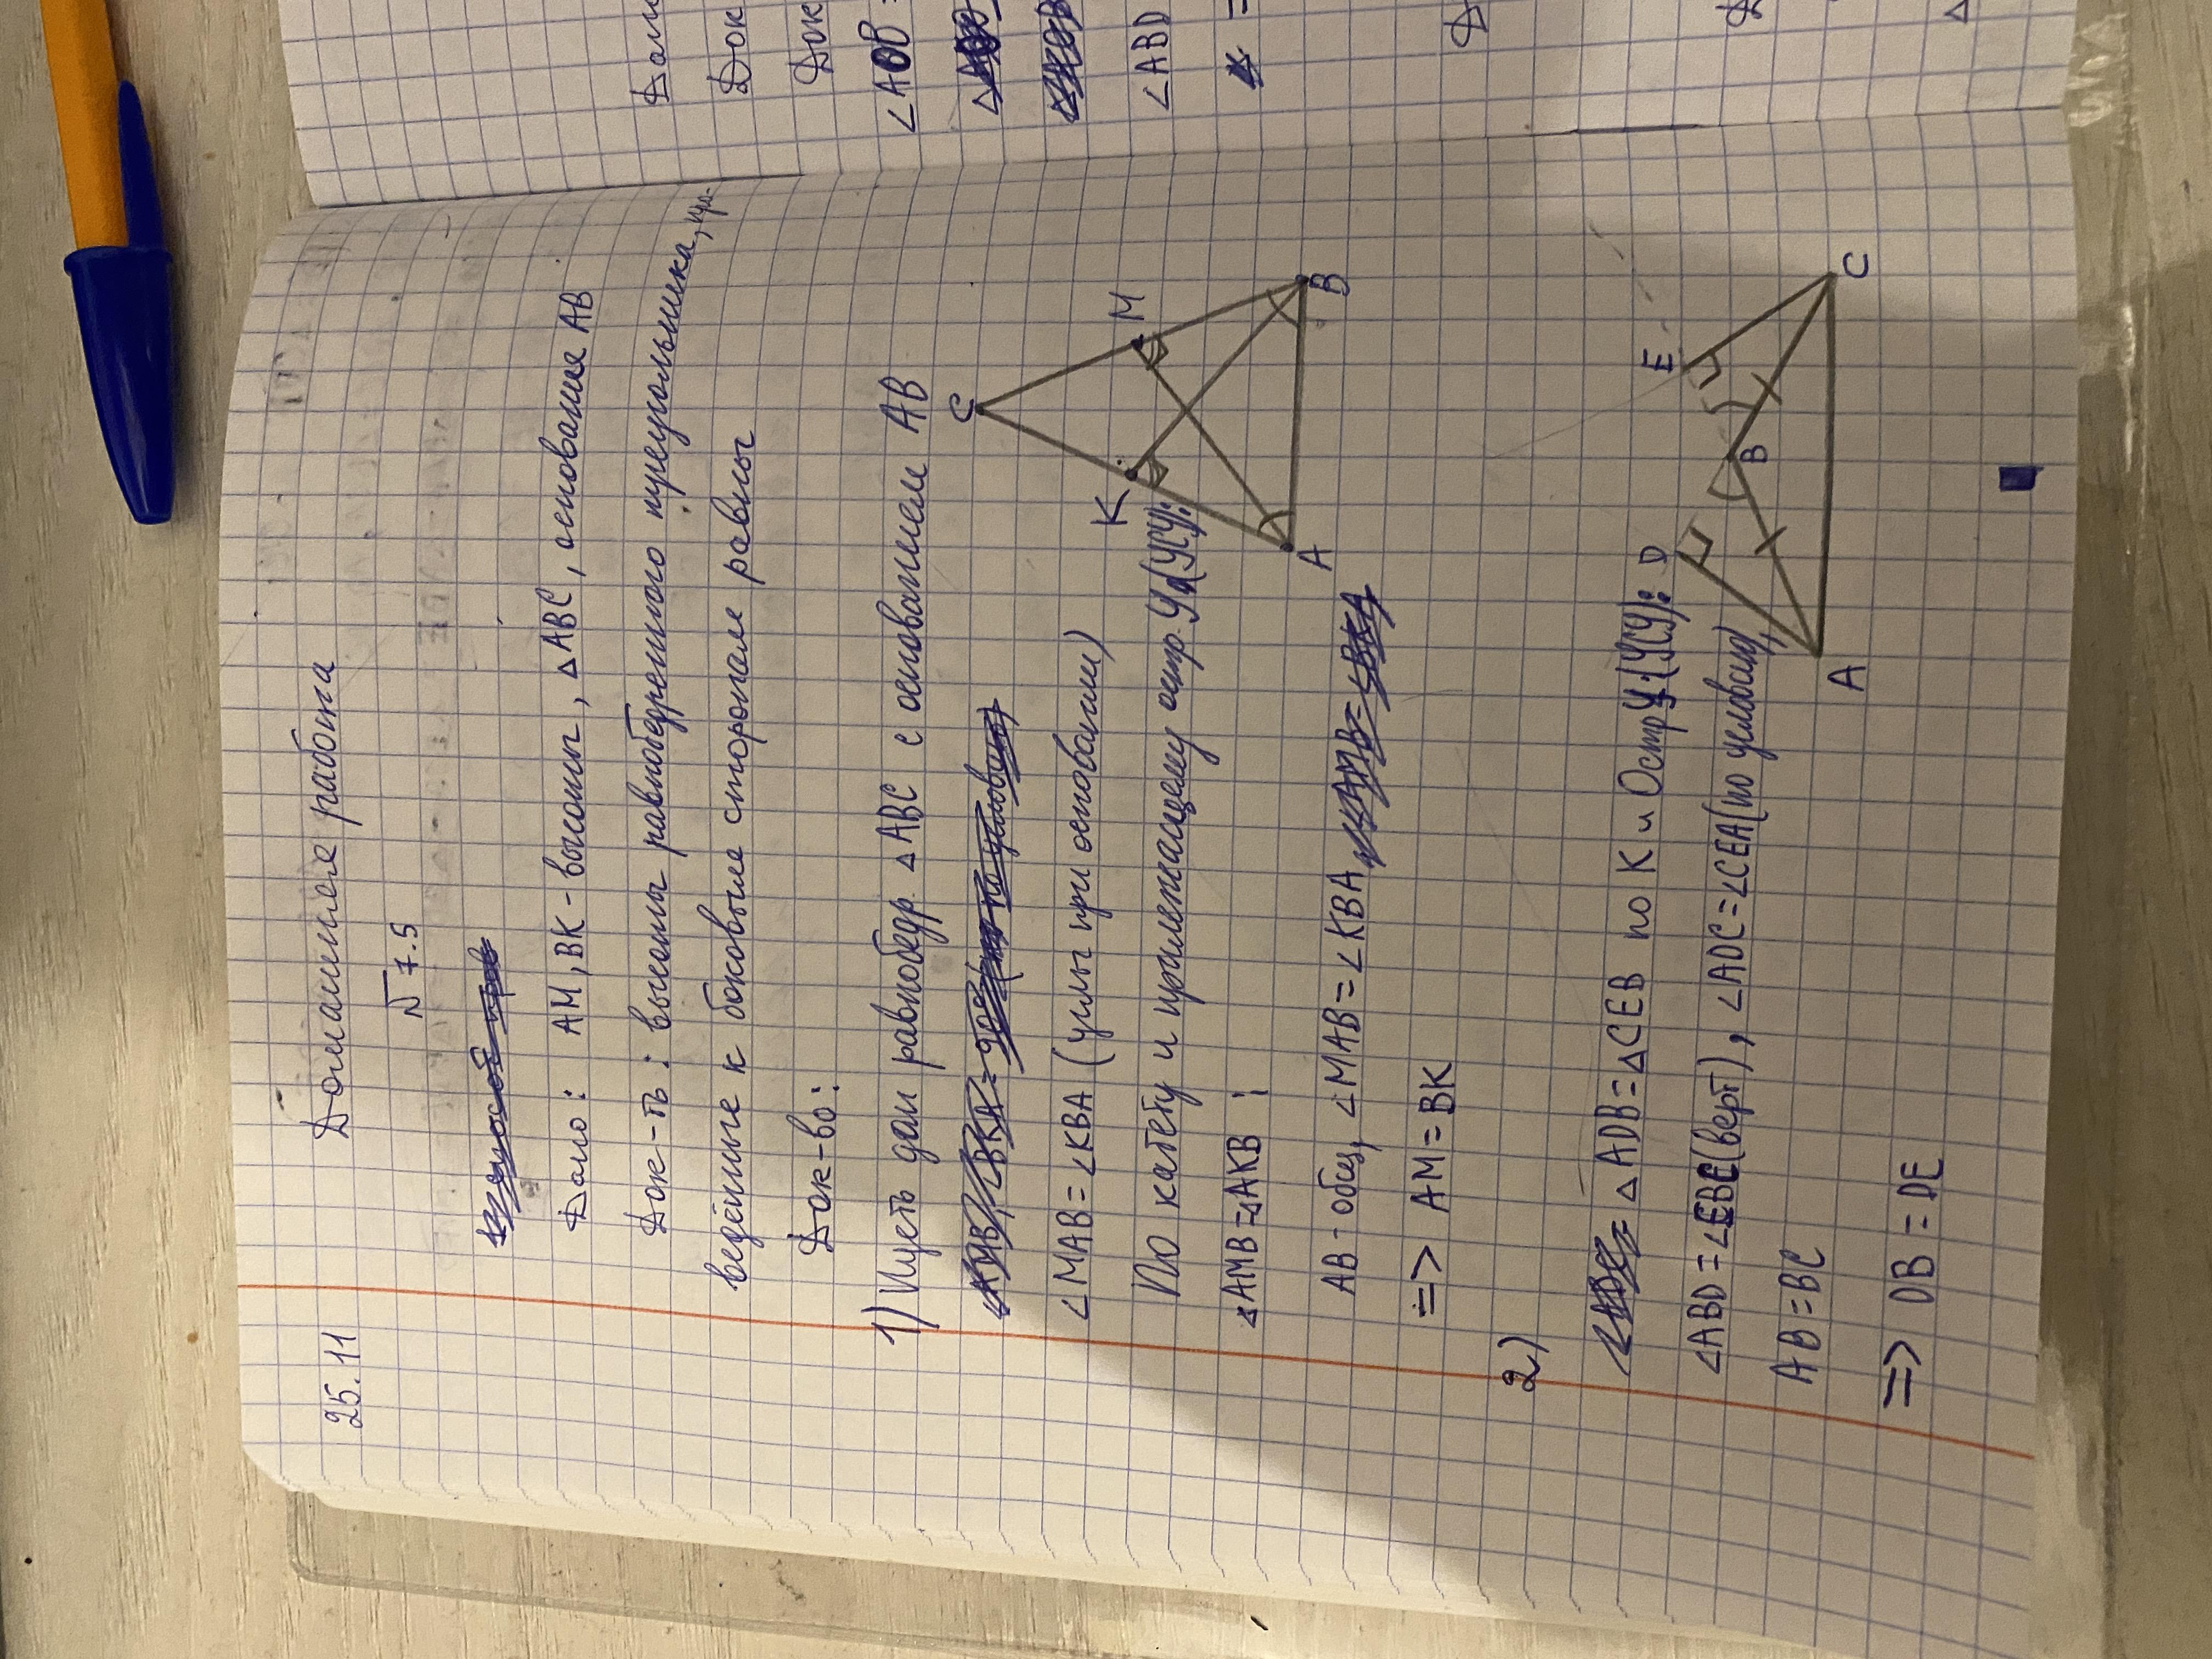 25.11
Домашняя работа
№ 7.5
Дано: AM, BK - высоты, △ABC, основание AB
Док-ть: высоты равнобедренного треугольника, про-
ведённые к боковым сторонам равны
Док-во:
1) Пусть дан равнобедр. △ABC с основанием AB
∠MAB = ∠KBA (углы при основании)
По катету и прилежащему остр. У (УСУ):
△AMB = △AKB :
AB - общ, ∠MAB = ∠KBA
=> AM = BK
C
K
M
A
B
2)
△ADB = △CEB по К и Остр У. (УСУ):
∠ABD = ∠EBC (верт), ∠ADC = ∠CEA (по условию)
AB = BC
=> DB = DE
D
E
B
A
C
Док
Док
∠AOB =
∠ABD
=
Д
Д
△